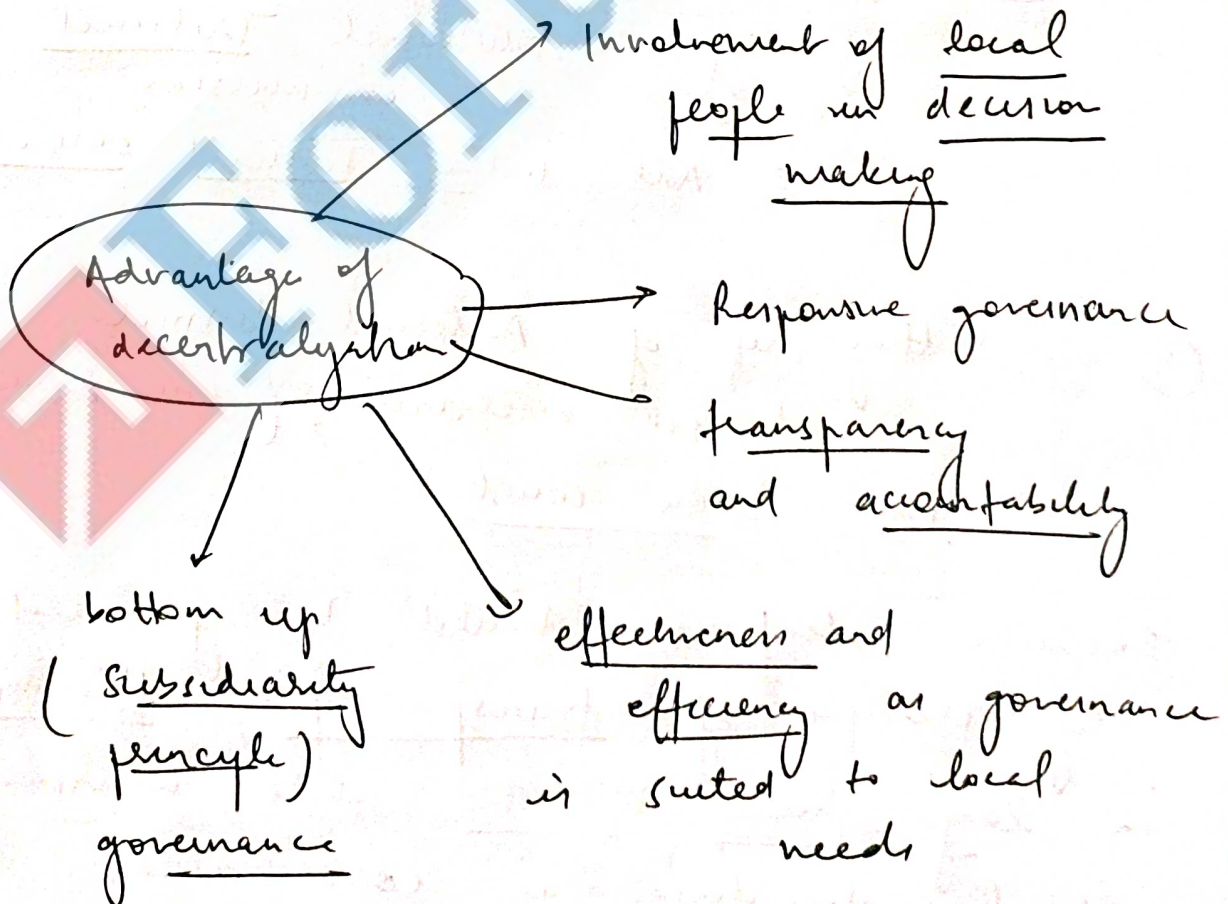 Involvement of local
people in decision
making
Advantage of
decentralization
Responsive governance
transparency
and accountability
bottom up
(subsidiarity
principle)
governance
effectiveness and
efficiency as governance
is suited to local
needs
For